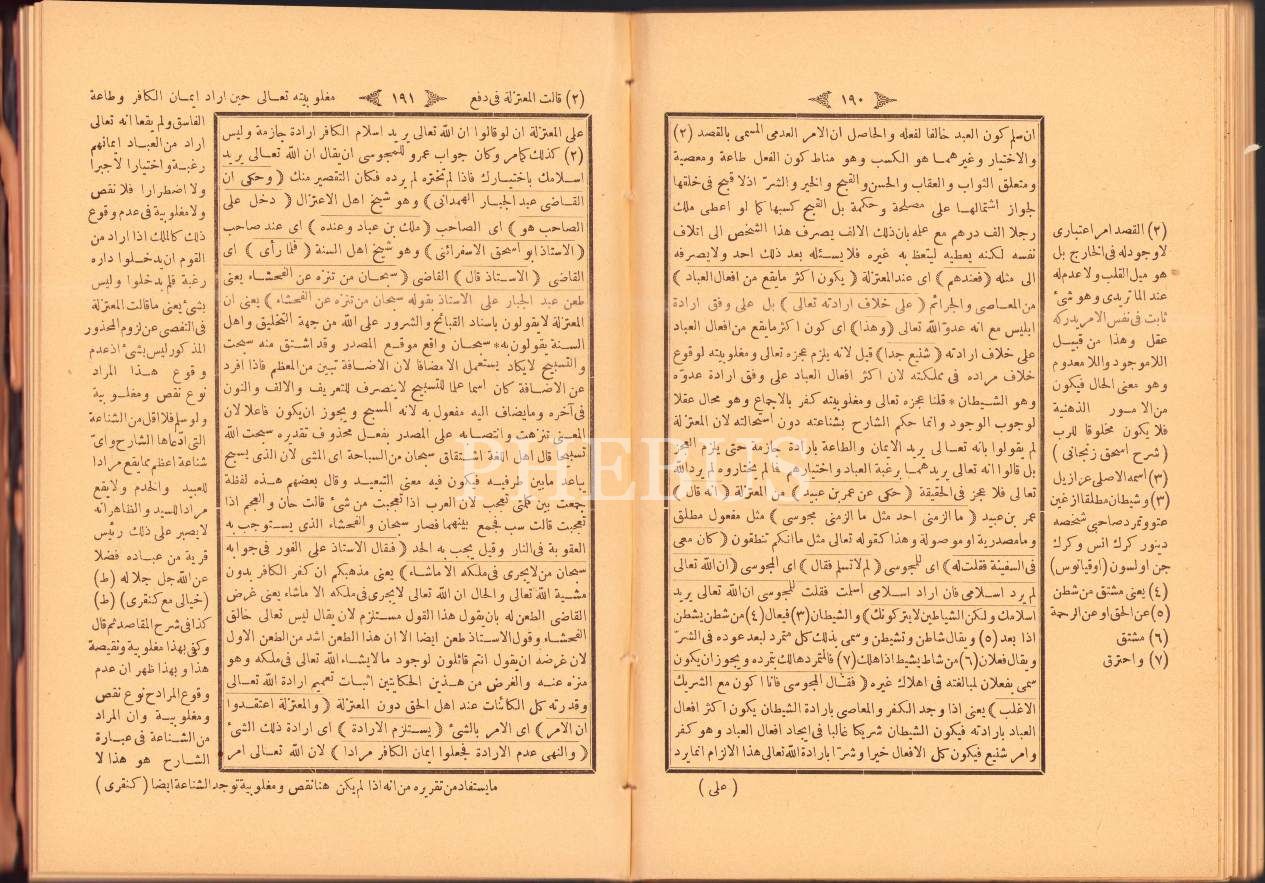 ١٩٠
ان سلم كون العبد خالقا لفعله والحاصل ان الامر العدمى المسمى بالقصد (٢)
والاختيار وغيرهما هو الكسب وهو مناط كون الفعل طاعة ومعصية
ومتعلق الثواب والعقاب والحسن والقبيح والخير والشر اذ لا قبح فى خلقها
لجواز اشتمالها على مصلحة وحكمة بل القبح كسبها كما لو اعطى ملك
رجلا الف درهم مع علمه بان ذلك الالف يصرف هذا الشخص الى اتلاف
نفسه لكنه يعطيه ليتعظ به غيره فلا يسئله بعد ذلك احد ولا يصرفه
الى مثله (فعندهم) اى عند المعتزلة (يكون اكثر ما يقع من افعال العباد)
من المعاصى والجرائم (على خلاف ارادته تعالى) بل على وفق ارادة
ابليس مع انه عدو الله تعالى (وهذا) اى كون اكثر ما يقع من افعال العباد
على خلاف ارادته (شنيع جدا) قيل لانه يلزم عجزه تعالى ومغلوبيته لوقوع
خلاف مراده فى مملكته لان اكثر افعال العباد على وفق ارادة عدوه
وهو الشيطان * قلنا عجزه تعالى ومغلوبيته كفر بالاجماع وهو محال عقلا
لوجوب الوجود وانما حكم الشارح بشناعته دون استحالته لان المعتزلة
لم يقولوا بانه تعالى يريد الايمان والطاعة بارادة جازمة حتى يلزم العجز
بل قالوا انه تعالى يريدهما برغبة العباد واختيارهم فا لم مختاروه لم يرد الله
تعالى فلا عجز فى الحقيقة (حكى عن عمر بن عبيد) من المعتزلة (انه قال)
عمر بن عبيد (ما الزمنى احد مثل ما الزمنى مجوسى) مثل مفعول مطلق
وما مصدرية او موصولة وهذا كقوله تعالى مثل ما انكم تنطقون (كان معى
فى السفينة فقلت له) اى للمجوسى (لم لا تسلم فقال) اى المجوسى (ان الله تعالى
لم يرد اسلامى فان اراد اسلامى اسلمت فقلت للمجوسى ان الله تعالى يريد
اسلامك ولكن الشياطين لا يتركونك) والشيطان (٣) فيعال (٤) من شطن يشطن
اذا بعد (٥) ويقال شاطن وتشيطن وسمى بذلك كل متمرد لبعد عوده فى الشر
ويقال فعلان (٦) من شاط يشيط اذا هلك (٧) فالمتمرد هالك بتمرده ويجوز ان يكون
سمى بفعلان لمبالغته فى اهلاك غيره (فقال المجوسى فانا اكون مع الشريك
الاغلب) يعنى اذا وجد الكفر والمعاصى بارادة الشيطان يكون اكثر افعال
العباد بارادته فيكون الشيطان شريكا غالبا فى ايجاد افعال العباد وهو كفر
وامر شنيع فيكون كل الافعال خيرا وشرا بارادة الله تعالى هذا الالزام انما يرد
(على)
(٢) القصد امر اعتبارى
لا وجود له فى الخارج بل
هو ميل القلب ولا عدم له
عند الماتريدى وهو شئ
ثابت فى نفس الامر يدركه
عقل وهذا من قبيل
اللا موجود واللا معدوم
وهو معنى الحال فيكون
من الامور الذهنية
فلا يكون مخلوقا للرب
(شرح اسحق زنجانى)
(٣) اسمه الاصلى عزازيل
(٣) وشيطان مطلقا ازغين
عتو وتمرد صاحى شخصه
دينور كرك انس وكرك
جن اولسون (اوقيانوس)
(٤) يعنى مشتق من شطن
(٥) عن الحق او عن الرحمة
(٦) مشتق
(٧) واحترق
١٩١
على المعتزلة ان لو قالوا ان الله تعالى يريد اسلام الكافر ارادة جازمة وليس
(٢) كذلك كما مر وكان جواب عمرو للمجوسى ان يقال ان الله تعالى يريد
اسلامك باختيارك فاذا لم تختره لم يرده فكان التقصير منك (وحكى ان
القاضى عبد الجبار الهمدانى) وهو شيخ اهل الاعتزال (دخل على
الصاحب هو) اى الصاحب (ملك بن عباد وعنده) اى عند صاحب
(الاستاذ ابو اسحق الاسفرائنى) وهو شيخ اهل السنة (فلما رأى) اى
القاضى (الاستاذ قال) القاضى (سبحان من تنزه عن الفحشاء) يعنى
طعن عبد الجبار على الاستاذ بقوله سبحان من تنزه عن الفحشاء) يعنى ان
المعتزلة لا يقولون باسناد القبائح والشرور على الله من جهة التخليق واهل
السنة يقولون به * سبحان واقع موقع المصدر وقد اشتق منه سبحت
والتسبيح لا يكاد يستعمل الا مضافا لان الاضافة تبين من المعظم فاذا افرد
عن الاضافة كان اسما علما للتسبيح لا ينصرف للتعريف والالف والنون
فى آخره وما يضاف اليه مفعول به لانه المسبح ويجوز ان يكون فاعلا لان
المعنى تنزهت وانتصابه على المصدر بفعل محذوف تقديره سبحت الله
تسبيحا قال اهل اللغة اشتقاق سبحان من السباحة اى المشى لان الذى يسبح
يباعد ما بين طرفيه فيكون فيه معنى التبعيد وقال بعضهم هذه لفظة
جمعت بين كلمتى تعجب لان العرب اذا تعجبت من شئ قالت حان والعجم اذا
تعجبت قالت سب فجمع بينهما فصار سبحان والفحشاء الذى يستوجب به
العقوبة فى النار وقيل يجب به الحد (فقال الاستاذ على الفور فى جوابه
سبحان من لا يجرى فى ملكه الا ماشاء) يعنى مذهبكم ان كفر الكافر بدون
مشية الله تعالى والحال ان الله تعالى لا يجرى فى ملكه الا ماشاء يعنى غرض
القاضى الطعن له بان يقول هذا القول مستلزم لان يقال ليس تعالى خالق
الفحشاء وقول الاستاذ طعن ايضا الا ان هذا الطعن اشد من الطعن الاول
لان غرضه ان يقول انتم قائلون لوجود ما لا يشاء الله تعالى فى ملكه وهو
منزه عنه والغرض من هذين الحكايتين اثبات تعميم ارادة الله تعالى
وقدرته كل الكائنات عند اهل الحق دون المعتزلة (والمعتزلة اعتقدوا
ان الامر) اى الامر بالشئ (يستلزم الارادة) اى ارادة ذلك الشئ
(والنهى عدم الارادة فجعلوا ايمان الكافر مرادا) لان الله تعالى امر
(٢) قالت المعتزلة فى دفع مغلوبيته تعالى حين اراد ايمان الكافر وطاعة
الفاسق ولم يقعا انه تعالى
اراد من العباد ايمانهم
رغبة واختيارا لا جبرا
ولا اضطرارا فلا نقص
ولا مغلوبية فى عدم وقوع
ذلك كالملك اذا اراد من
القوم ان يدخلوا داره
رغبة فلم يدخلوا وليس
بشئ يعنى ما قالت المعتزلة
فى التفصى عن لزوم المحذور
المذكور ليس بشئ اذ عدم
وقوع هذا المراد
نوع نقص ومغلوبية
ولو سلم فلا اقل من الشناعة
التى ادعاها الشارح واى
شناعة اعظم مما يقع مرادا
للعبيد والخدم ولا يقع
مرادا للسيد والظاهر انه
لا يصبر على ذلك رئيس
قرية من عباده فضلا
عن الله جل جلاله (ط)
(خيالى مع كنقرى) (ط)
كذا فى شرح المقاصد ثم قال
وكفى بهذا مغلوبية ونقيصة
هذا وبهذا ظهر ان عدم
وقوع المراد نوع نقص
ومغلوبية وان المراد
من الشناعة فى عبارة
الشارح هو هذا لا
ما يستفاد من تقريره من انه اذا لم يكن هنا نقص ومغلوبية توجد الشناعة ايضا (كنقرى)
PHEBUS